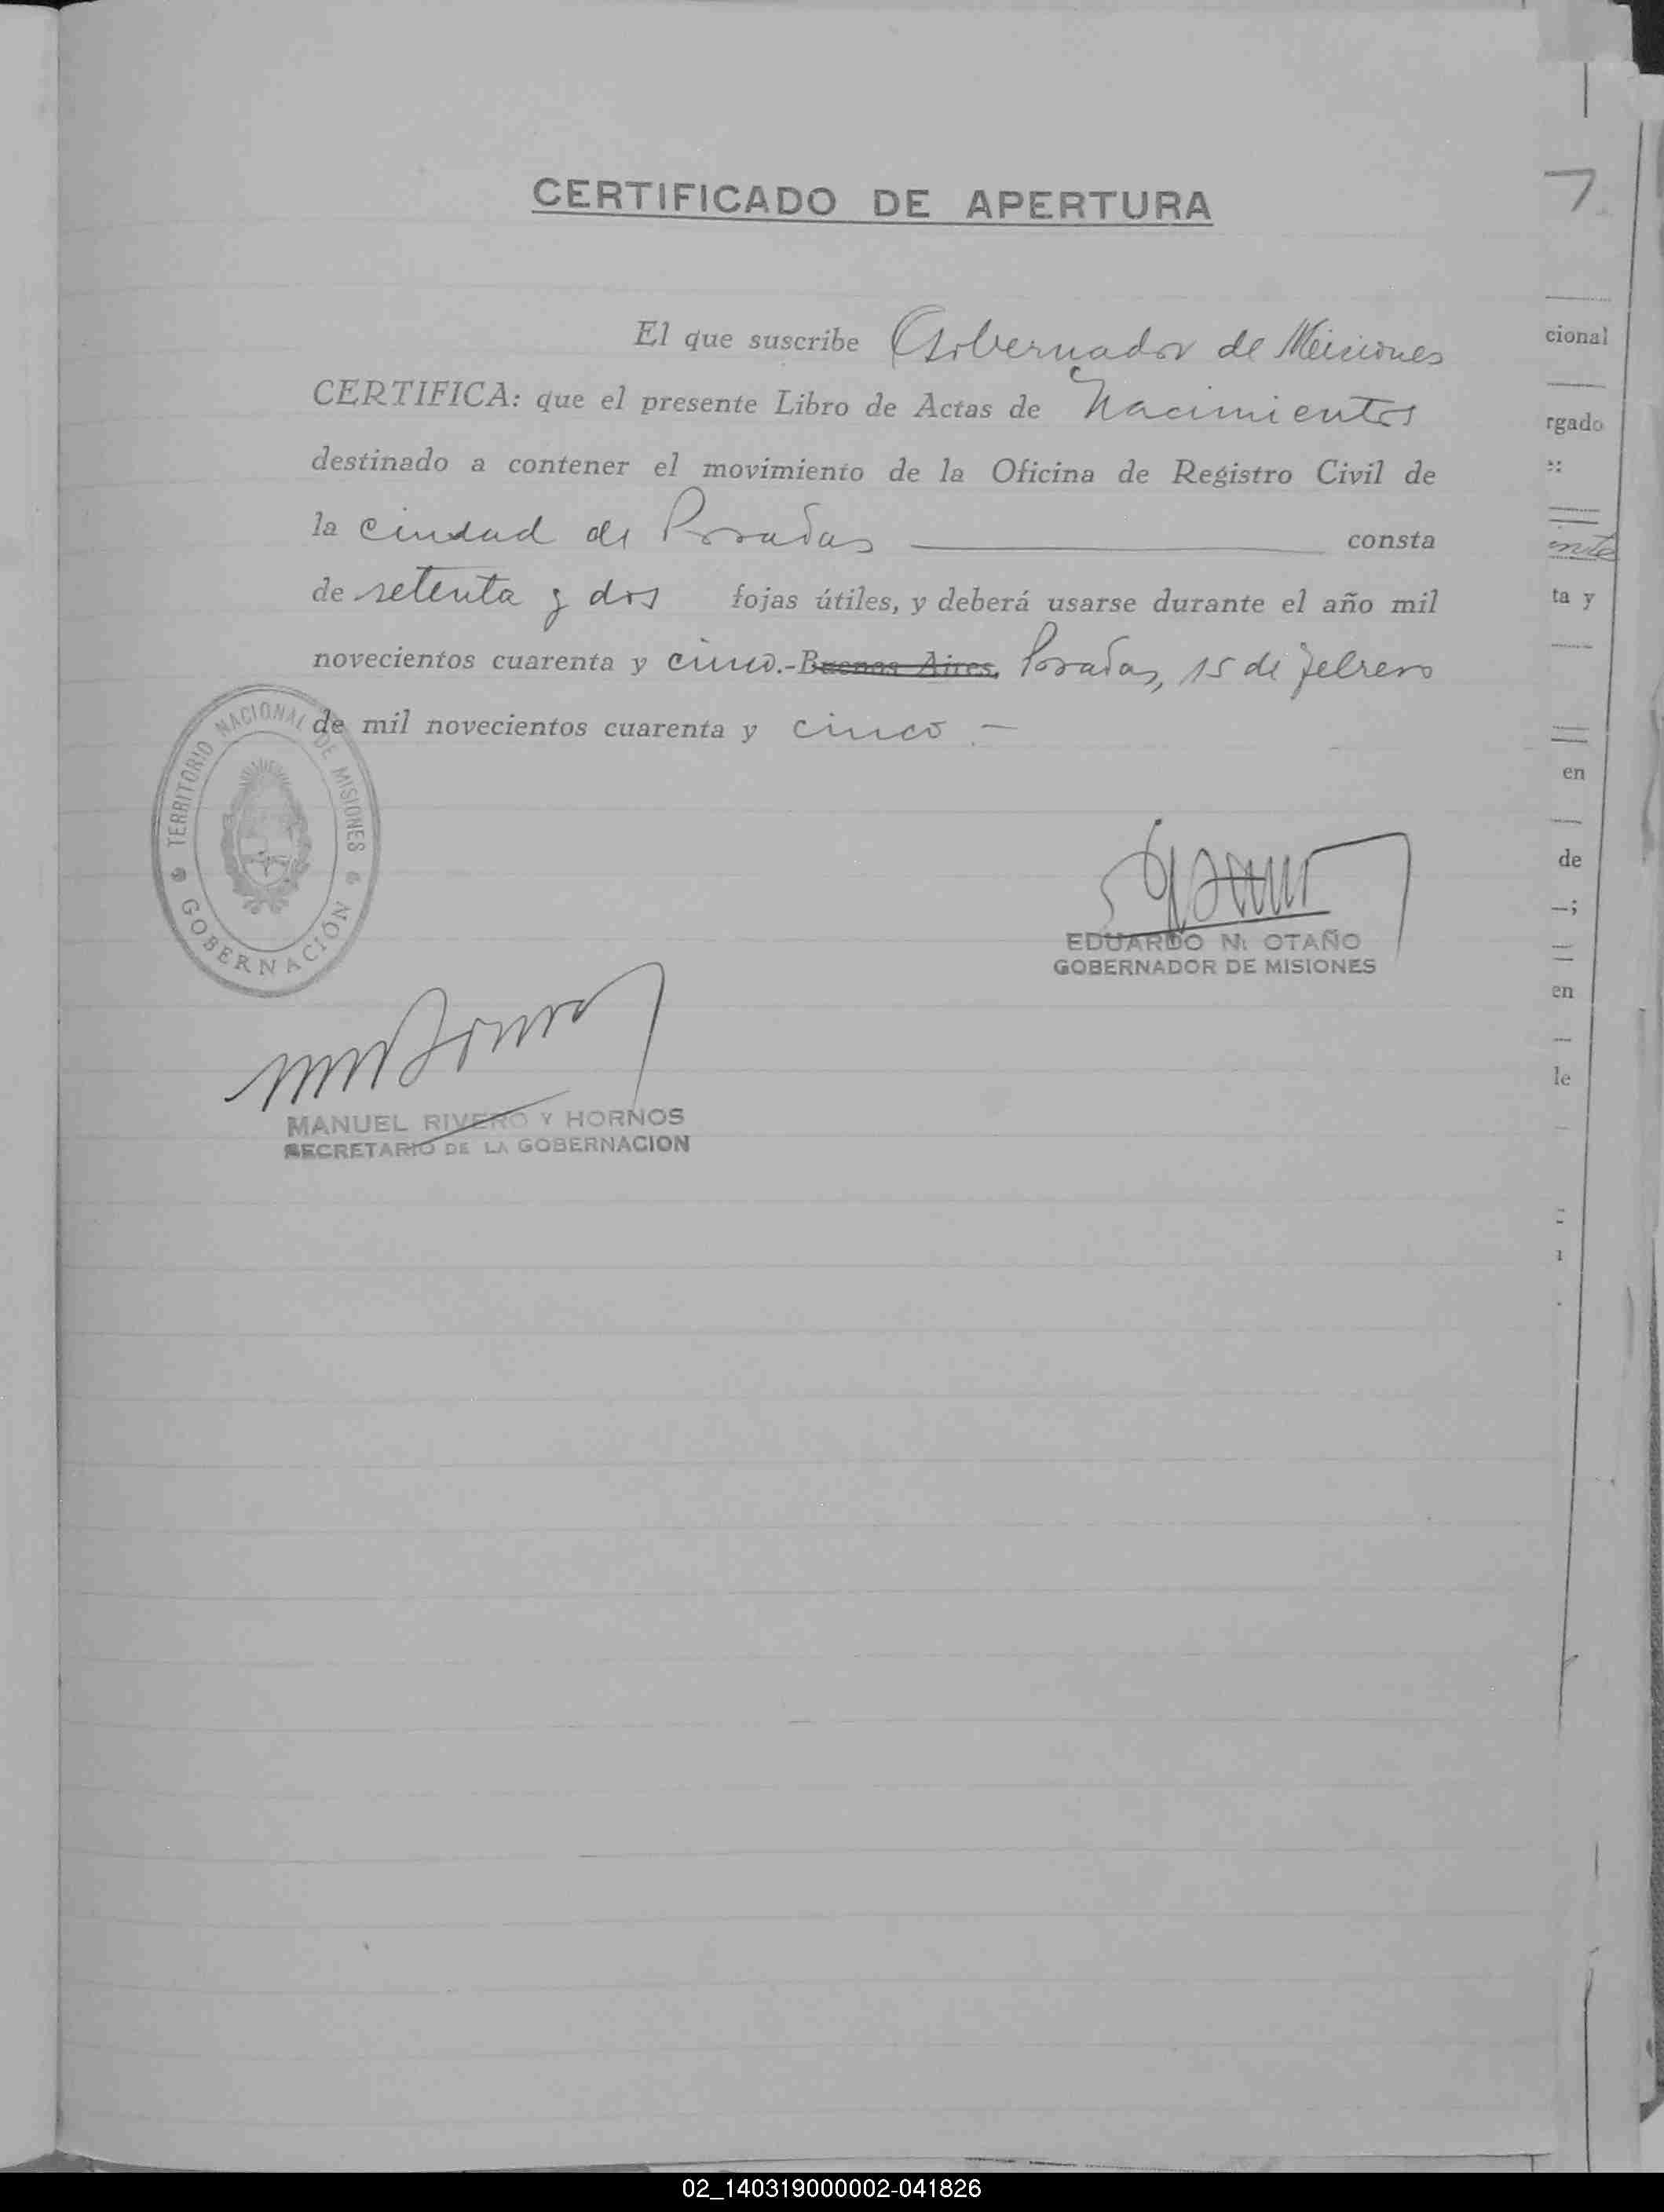 CERTIFICADO DE APERTURA
7
El que suscribe Gobernador de Misiones
CERTIFICA: que el presente Libro de Actas de Nacimientos
destinado a contener el movimiento de la Oficina de Registro Civil de
la ciudad de Posadas consta
de setenta y dos fojas útiles, y deberá usarse durante el año mil
novecientos cuarenta y cinco.- Buenos Aires, Posadas, 15 de febrero
de mil novecientos cuarenta y cinco.-
TERRITORIO NACIONAL DE MISIONES
GOBERNACIÓN
EDUARDO N. OTAÑO
GOBERNADOR DE MISIONES
MANUEL RIVERO Y HORNOS
SECRETARIO DE LA GOBERNACION
cional
rgado
ta y
en
de
—;
en
le
02_140319000002-041826